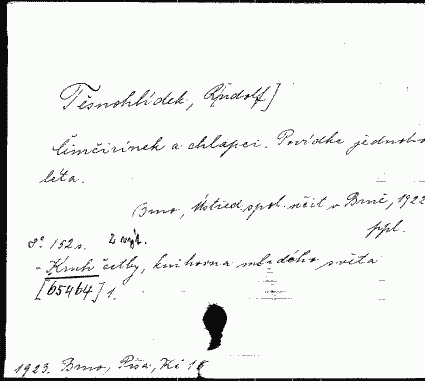 Těsnohlídek, Rudolf]
Čimčirínek a chlapci. Povídka jednoho
léta.
Brno, Ústřed. spol. učit. v Brně, 1922
ppl.
8° 152 s. 2 vyd.
- Kruh četby, knihovna mladého světa
[65464] 1.
1923. Brno, Píša, Kč 18